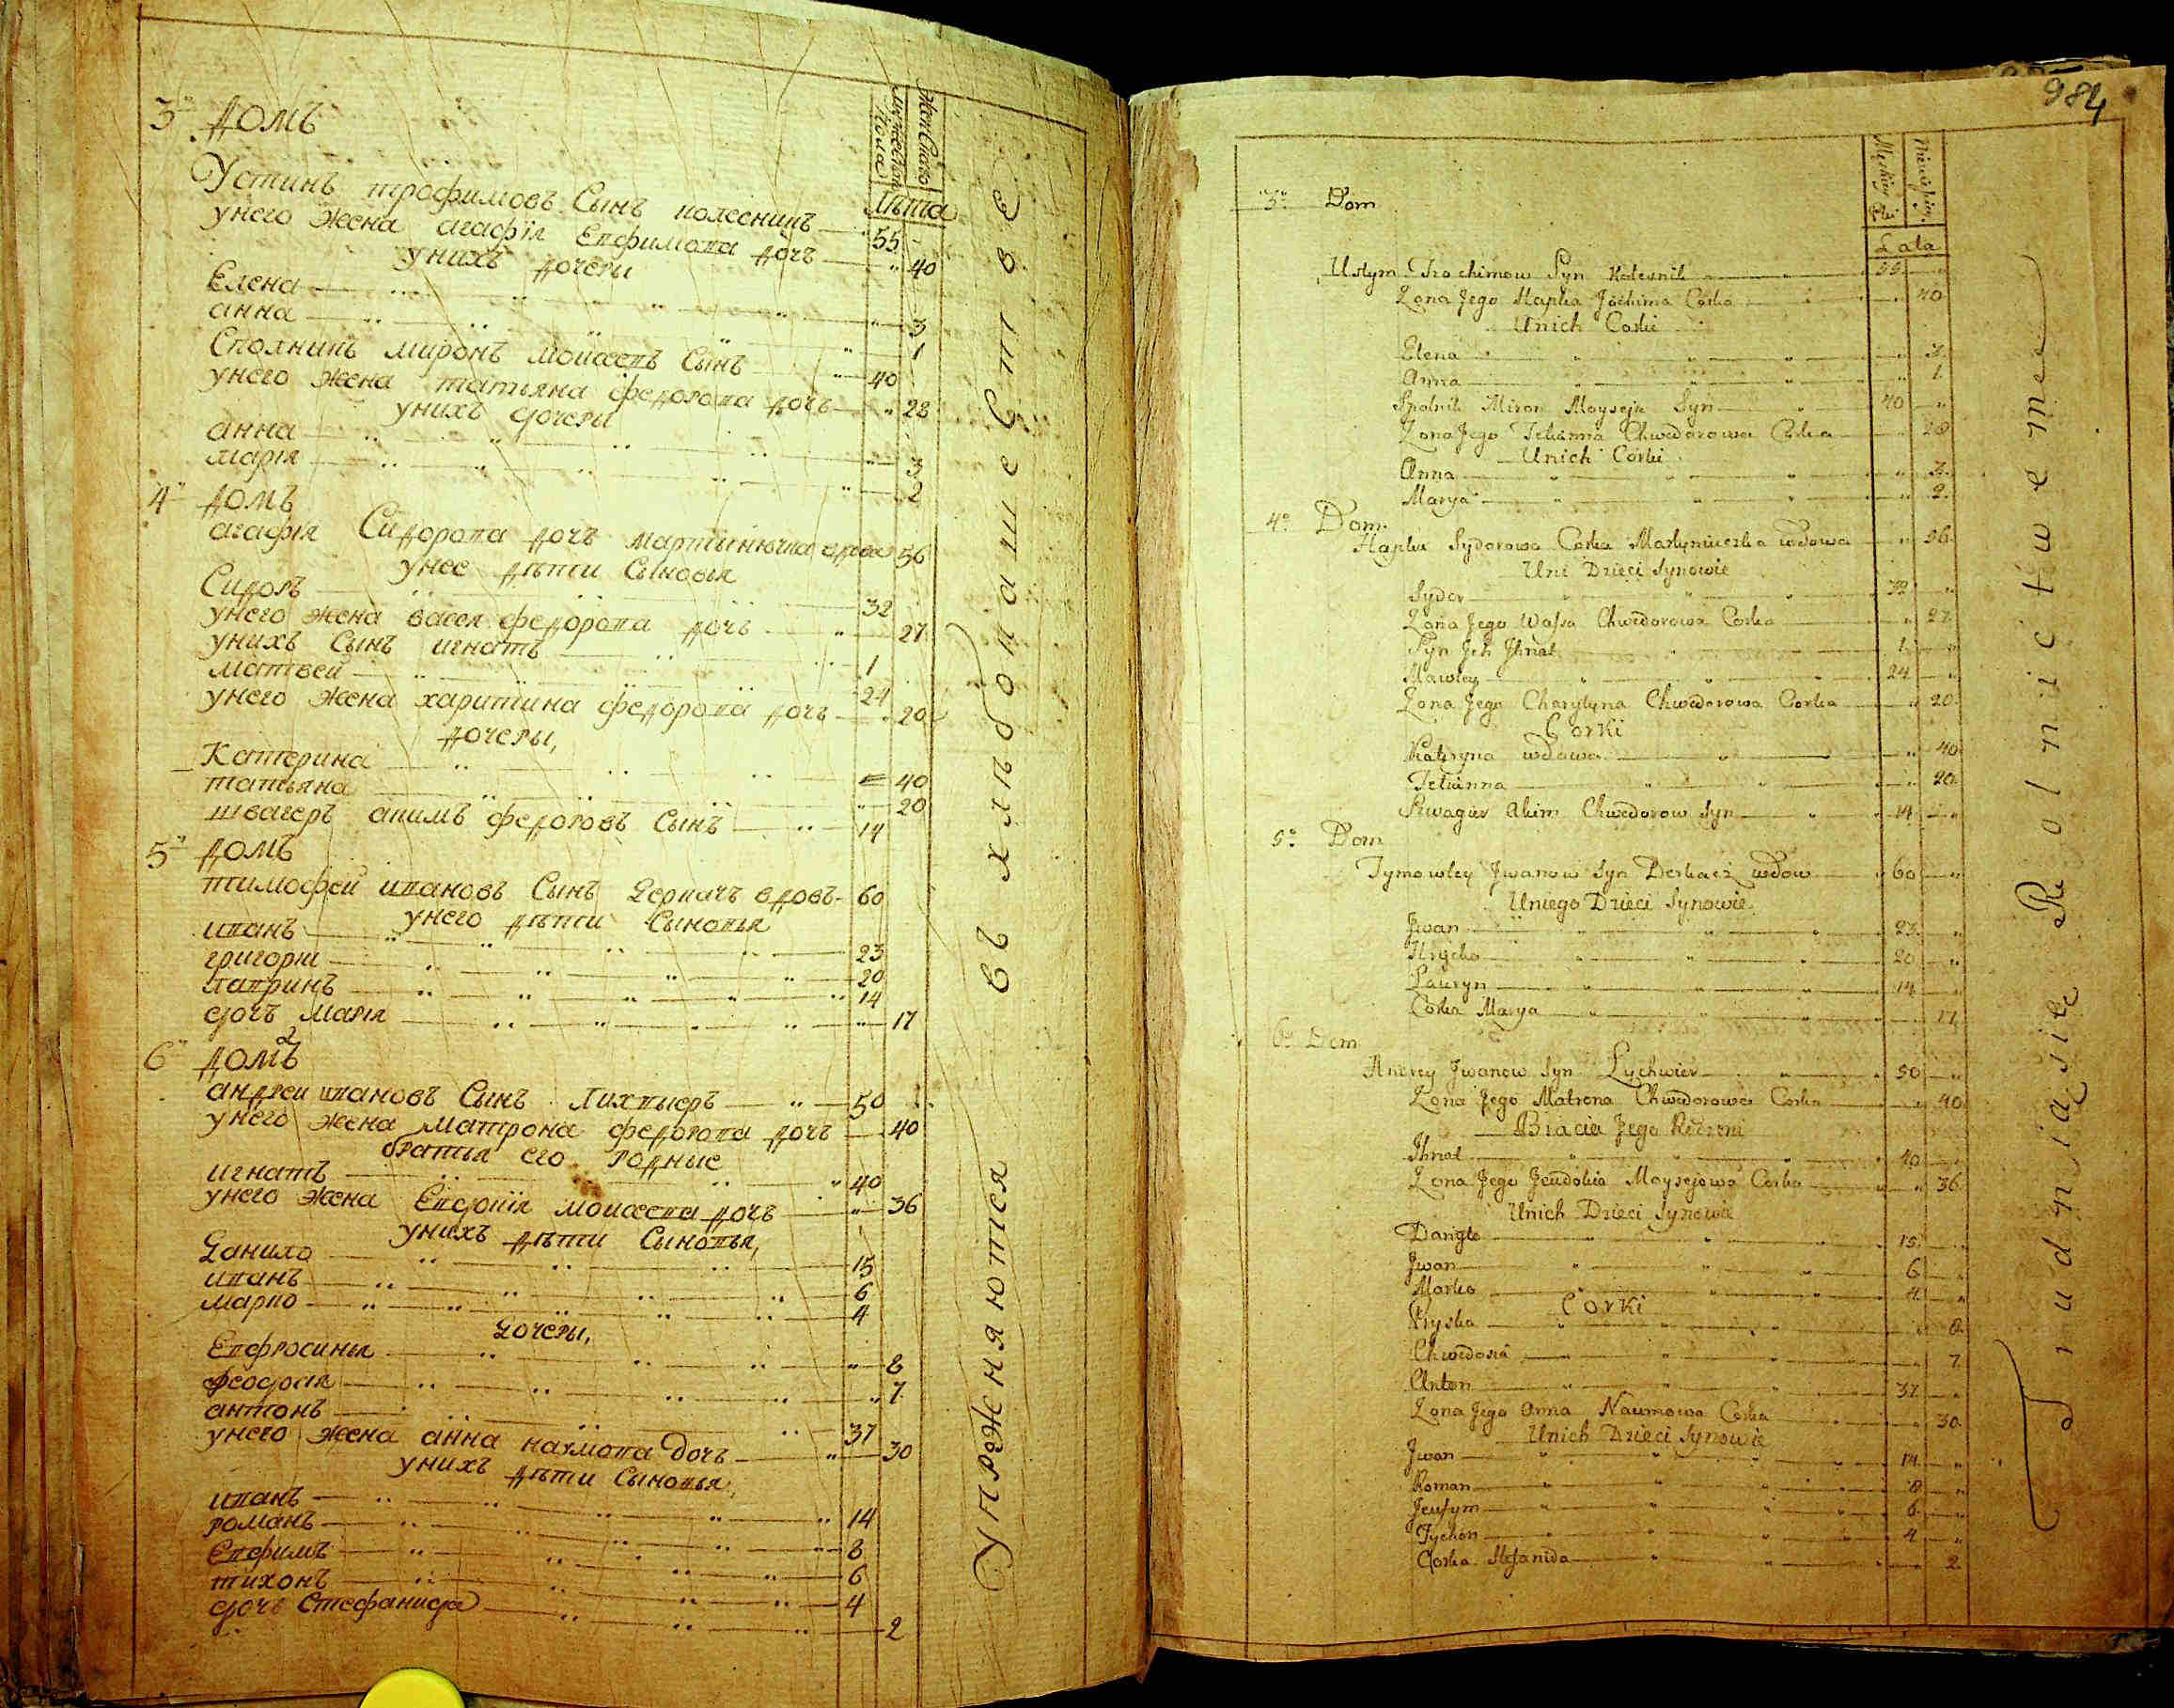 3 домъ
Мужеска Пола
Женска
Лѣта
Устинъ трофимовъ Сынъ колесникъ 55
унего жена агафія Евфимова дочъ 40
унихъ дочеры
Елена 3
анна 1
Сполникъ миронъ моисеевъ Сынъ 40
унего жена татьяна федорова дочъ 28
унихъ дочеры
анна 3
марія 2
4 домъ
агафія Сидорова дочъ мартынючка вдова 56
унее дѣти Сыновья
Сидоръ 32
унего жена васса федорова дочъ 27
унихъ Сынъ игнатъ 1
матвей 24
унего жена харитина федорова дочъ 20
дочеры,
Катерина 40
татьяна 20
швагеръ акимъ федоровъ Сынъ 14
5 домъ
тимофей ивановъ Сынъ Деркачъ вдовъ 60
унего дѣти Сыновья
иванъ 23
григорій 20
лавринъ 14
дочъ марія 17
6 домъ
андрей ивановъ Сынъ Лихвыеръ 50
унего жена матрона федорова дочъ 40
братья его родные
игнатъ 40
унего жена Евдокія моисеева дочъ 36
унихъ дѣти Сыновья,
Данило 15
иванъ 6
марко 4
Дочеры,
Евфросинья 8
феодосія 7
антонъ 37
унего жена анна наумова дочъ 30
унихъ дѣти Сыновья,
иванъ 14
романъ 8
Евфимъ 6
тихонъ 4
дочъ Стефанида 2
Упражняются въ хлѣбопашествѣ
984
3 Dom
Męskiey Płci
Niewieściey
Lata
Ustym Trochimow Syn Kolesnik 55
Zona Jego Hapka Jochima Corka 40
Unich Corki
Elena 3
Anna 1
Spolnik Miron Moyseja Syn 40
Zona Jego Tetianna Chwedorowa Corka 28
Unich Corki
Anna 3
Marya 2
4 Dom
Hapka Sydorowa Corka Martyniuczka wdowa 56
Uni Dzieci Synowie
Sydor 32
Zona Jego Wassa Chwedorowa Corka 27
Syn Jch Jhnat 1
Mawtey 24
Zona Jego Charytyna Chwedorowa Corka 20
Corki
Katyryna wdowa 40
Tetianna 20
Szwagier Akim Chwedorow Syn 14
5 Dom
Tymowtey Jwanow Syn Derkacz wdow 60
Uniego Dzieci Synowie
Jwan 23
Hrycko 20
Lauryn 14
Corka Marya 17
6 Dom
Andrey Jwanow Syn Lychwier 50
Zona Jego Matrona Chwedorowa Corka 40
Bracia Jego Rodzeni
Jhnat 40
Zona Jego Jeudokia Moysejowa Corka 36
Unich Dzieci Synowie
Daniło 15
Jwan 6
Marko 4
Corki
Pryska 8
Chwedosia 7
Anton 37
Zona Jego Anna Naumowa Corka 30
Unich Dzieci Synowie
Jwan 14
Roman 8
Jeufym 6
Tychon 4
Corka Stefanida 2
Trudnią się Rolnictwem